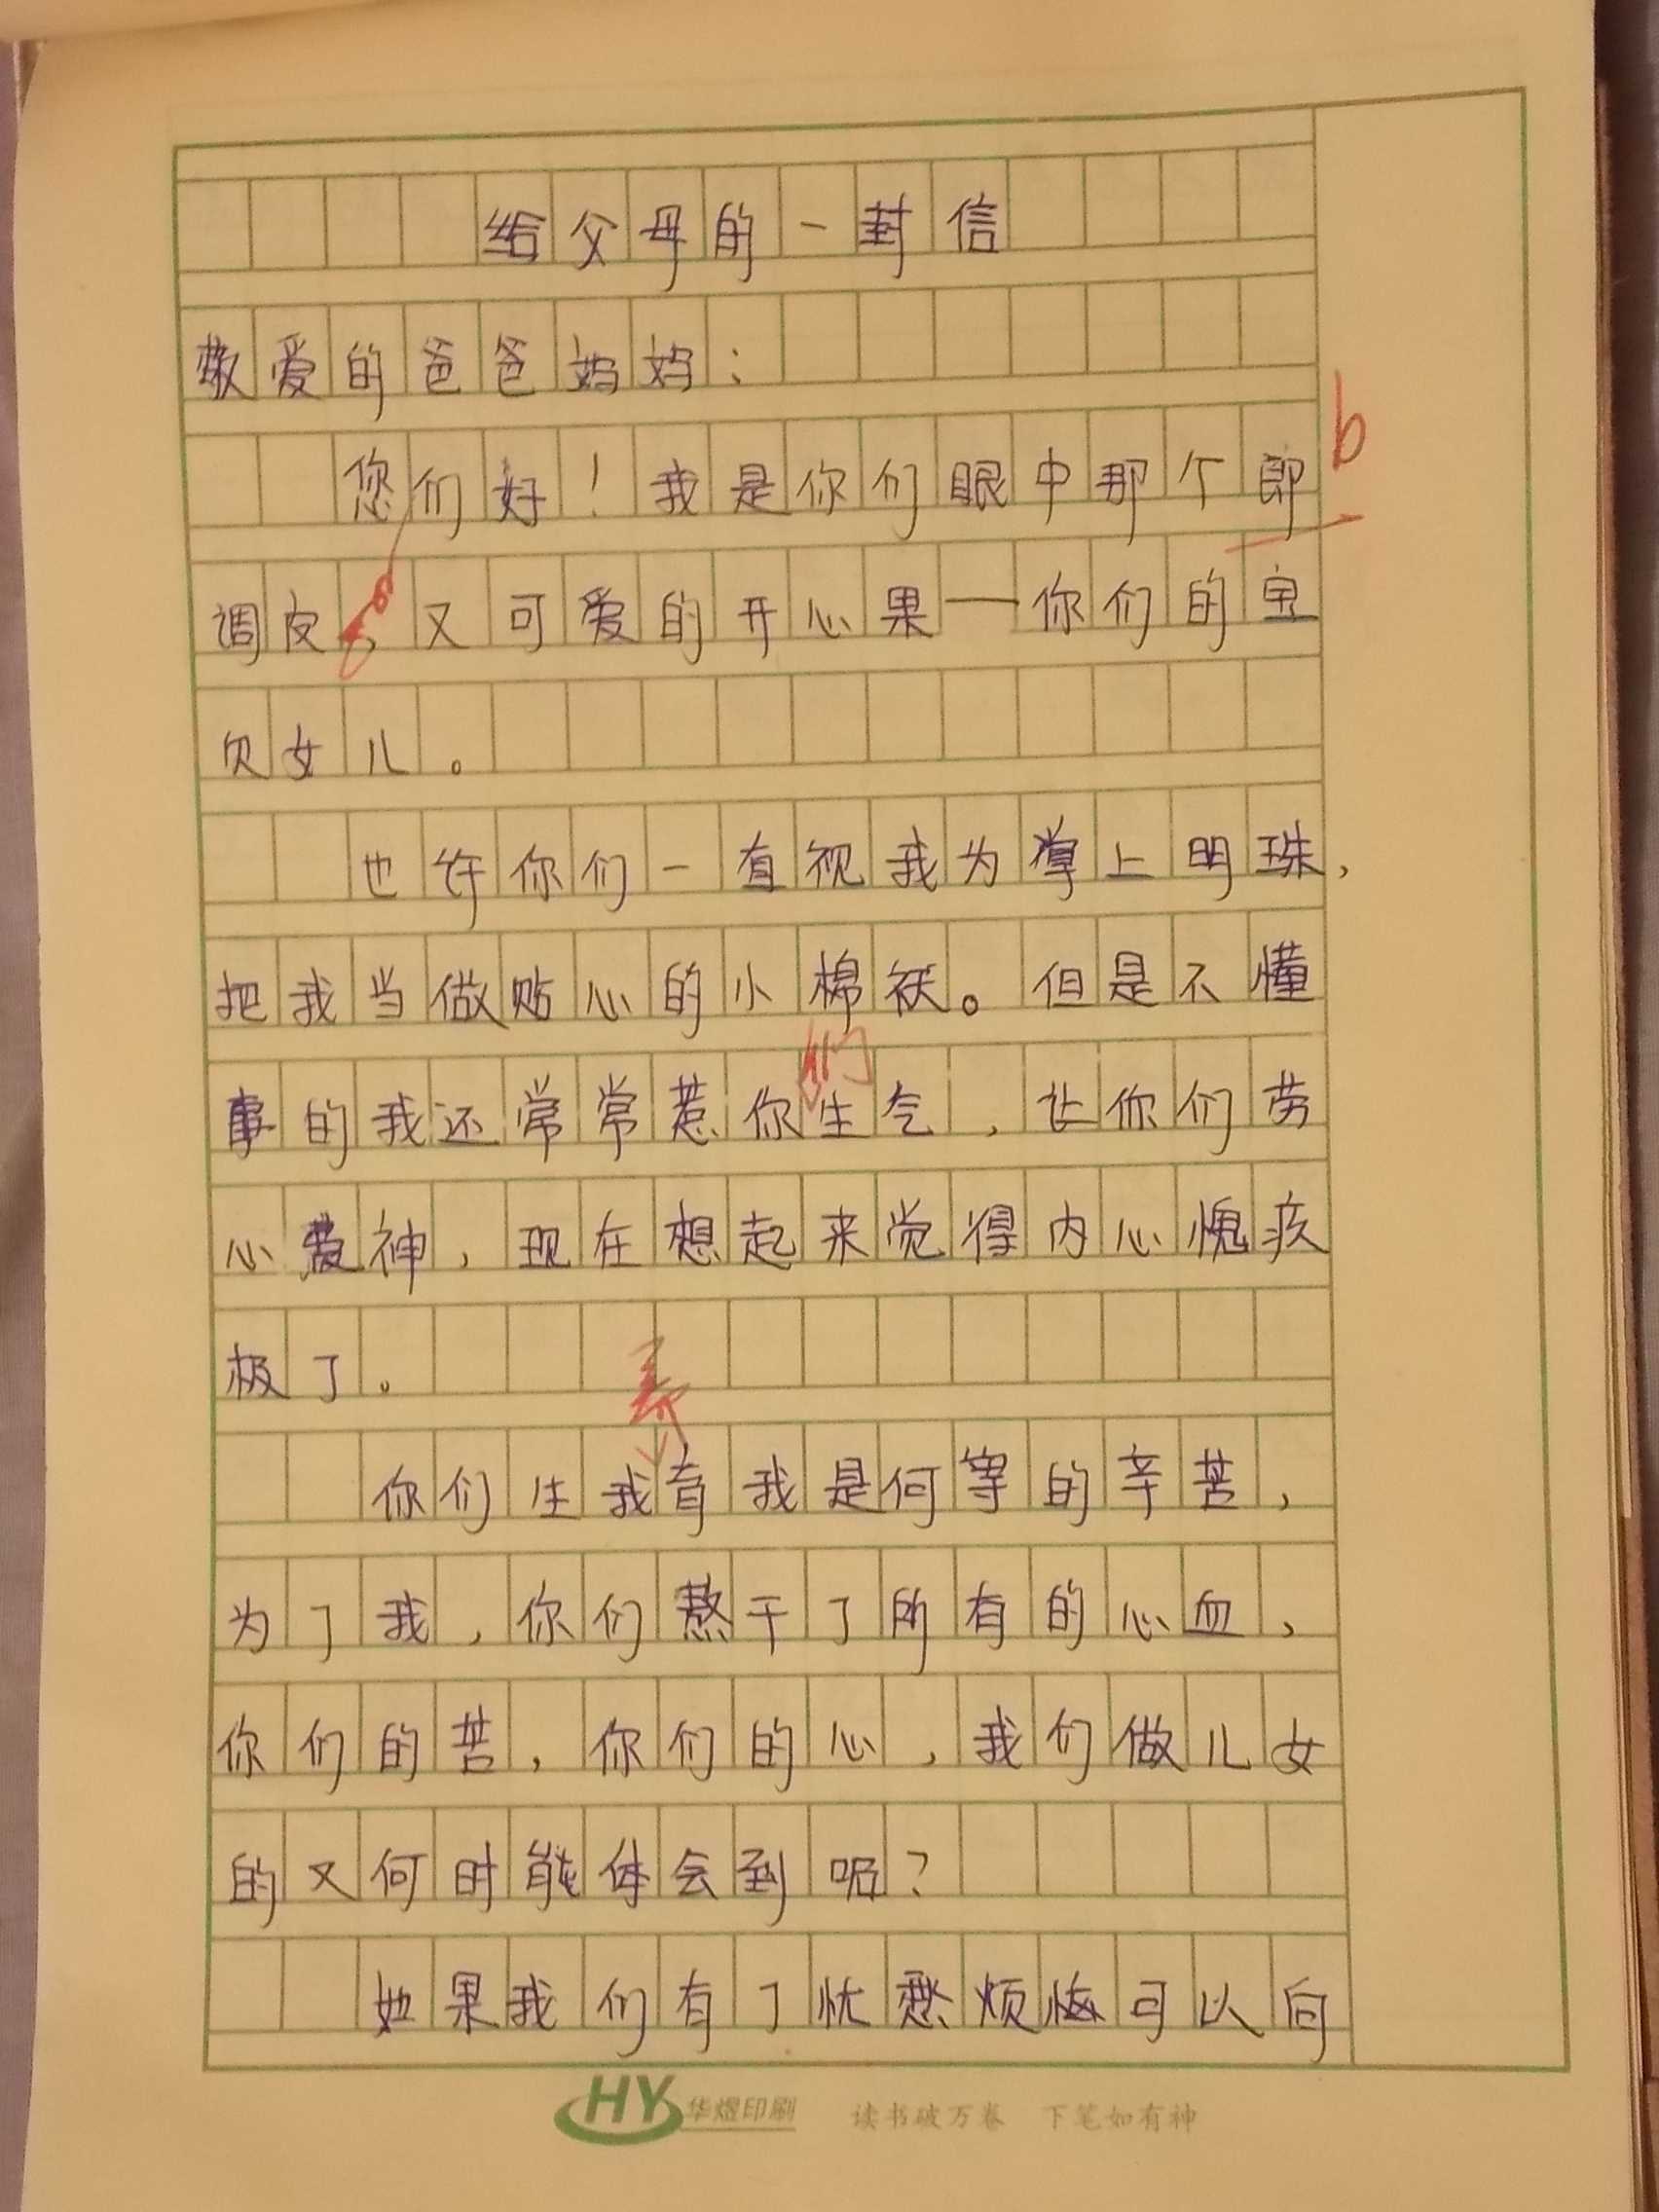 给父母的一封信
敬爱的爸爸妈妈：
您们好！我是你们眼中那个即
调皮，又可爱的开心果——你们的宝
贝女儿。
也许你们一直视我为掌上明珠，
把我当做贴心的小棉袄。但是不懂
们
事的我还常常惹你生气，让你们劳
心费神，现在想起来觉得内心愧疚
极了。
养
你们生我育我是何等的辛苦，
为了我，你们熬干了所有的心血，
你们的苦，你们的心，我们做儿女
的又何时能体会到呢？
如果我们有了忧愁烦恼可以向
HY 华煜印刷 读书破万卷 下笔如有神